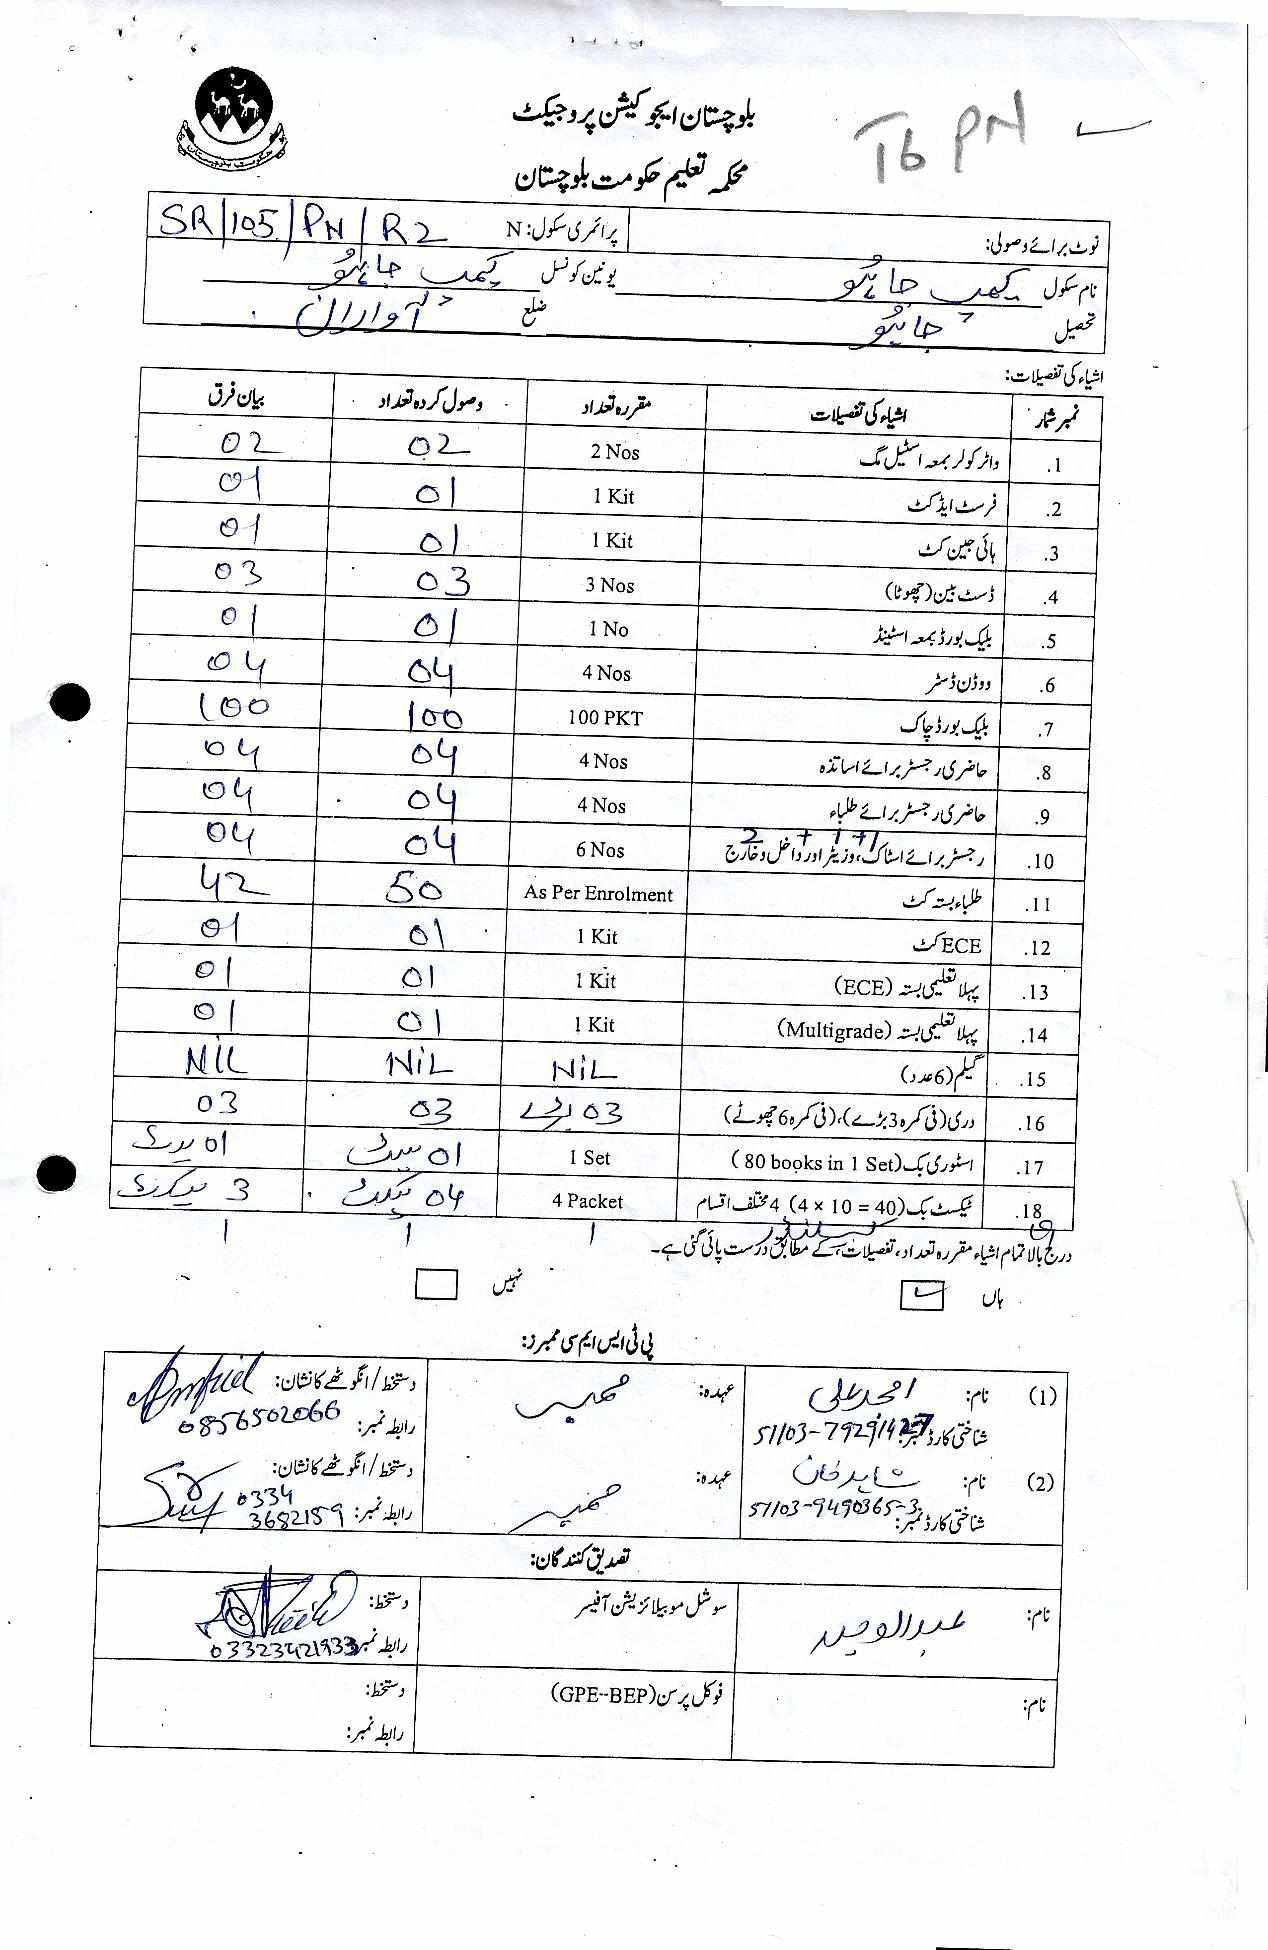 بلوچستان ایجوکیشن پروجیکٹ
T6 PN
محکمہ تعلیم حکومت بلوچستان
نوٹ برائے وصولی: پرائمری سکول: N SR/105/PN/R2
نام سکول کیمپ جاہو یونین کونسل کیمپ جاہو
تحصیل جاہو ضلع آواران
اشیاء کی تفصیلات:
نمبر شمار اشیاء کی تفصیلات مقررہ تعداد وصول کردہ تعداد بیان فرق
1. واٹر کولر بمعہ اسٹیل مگ 2 Nos 02 02
2. فرسٹ ایڈ کٹ 1 Kit 01 01
3. ہائی جین کٹ 1 Kit 01 01
4. ڈسٹ بین (چھوٹا) 3 Nos 03 03
5. بلیک بورڈ بمعہ اسٹینڈ 1 No 01 01
6. ووڈن ڈسٹر 4 Nos 04 04
7. بلیک بورڈ چاک 100 PKT 100 100
8. حاضری رجسٹر برائے اساتذہ 4 Nos 04 04
9. حاضری رجسٹر برائے طلباء 4 Nos 04 04
2 + 1 + 1
10. رجسٹر برائے اسٹاک، وزیٹر اور داخل و خارج 6 Nos 04 04
11. طلباء بستہ کٹ As Per Enrolment 50 42
12. ECE کٹ 1 Kit 01 01
13. پہلا تعلیمی بستہ (ECE) 1 Kit 01 01
14. پہلا تعلیمی بستہ (Multigrade) 1 Kit 01 01
15. گیلم (6 عدد) NiL NiL NiL
16. دری (فی کمرہ 3 بڑے)، (فی کمرہ 6 چھوٹے) 03 بڑے 03 03
17. اسٹوری بک (80 books in 1 Set) 1 Set 01 سیٹ 01 سیٹ
18. ٹیکسٹ بک (4 × 10 = 40) 4 مختلف اقسام 4 Packet 04 پیکٹ 3
19 1 1 1
درج بالا تمام اشیاء مقررہ تعداد، تفصیلات کے مطابق درست پائی گئی ہے۔
ہاں نہیں
پی ٹی ایس ایم سی ممبرز:
(1) نام: امجد علی عہدہ: ممبر دستخط/انگوٹھے کا نشان:
شناختی کارڈ نمبر: رابطہ نمبر: 0856502066
(2) نام: شاہد خان عہدہ: ممبر دستخط/انگوٹھے کا نشان:
شناختی کارڈ نمبر: 51103-9490365-3 رابطہ نمبر: 0334 3682159
تصدیق کنندگان:
نام: عبدالوحید سوشل موبیلائزیشن آفیسر دستخط:
رابطہ نمبر: 03323421933
نام: فوکل پرسن (GPE-BEP) دستخط:
رابطہ نمبر: